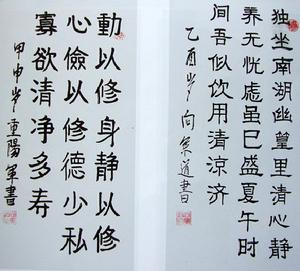 独坐南湖幽篁里清心静
养无忧虑虽已盛夏午时
间吾似饮用清凉济
乙酉岁向道書
動以修身静以修
心儉以修德少私
寡欲清净多寿
甲申岁重陽军書